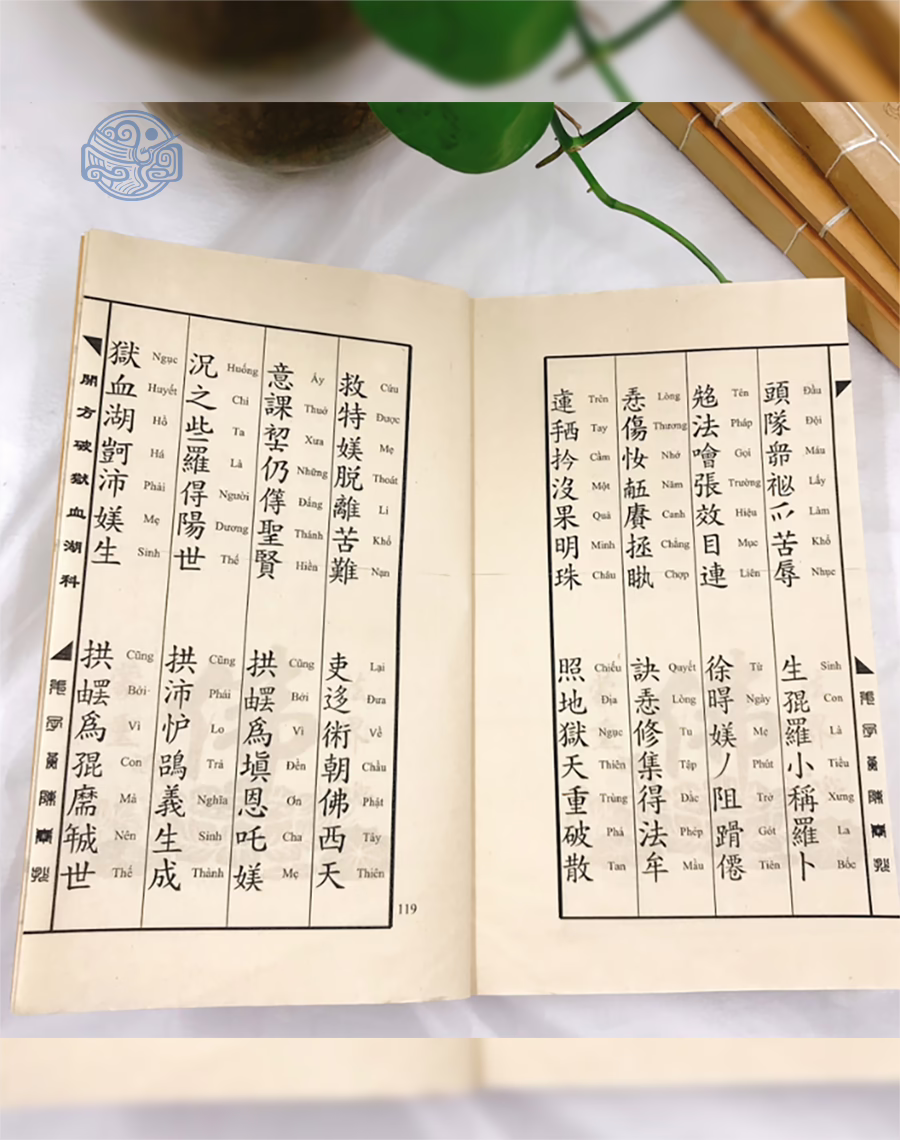 頭隊苦辱
Đầu Đội Máu Lấy Làm Khổ Nhục
生猑羅小稱羅卜
Sinh Con Là Tiểu Xưng La Bốc
法噲張效目連
Tên Pháp Gọi Trường Hiệu Mục Liên
徐媄阻僊
Từ Ngày Mẹ Phút Trở Gót Tiên
傷賡拯
Lòng Thương Nhớ Năm Canh Chẳng Chợp
訣修集得法牟
Quyết Lòng Tu Tập Dắc Phép Mầu
扲沒果明珠
Trên Tay Cầm Một Quả Minh Châu
照地獄天重破散
Chiếu Địa Ngục Thiên Trùng Phá Tan
救特媄脫離苦難
Cứu Được Mẹ Thoát Li Khổ Nạn
吏迻術朝佛西天
Lại Đưa Về Chầu Phật Tây Thiên
意課仍聖賢
Ấy Thuở Xưa Những Đấng Thánh Hiền
拱爲填恩吒媄
Cũng Bởi Vì Đền Ơn Cha Mẹ
況之些羅得陽世
Huống Chi Ta Là Người Dương Thế
拱沛義生成
Cũng Phải Lo Trả Nghĩa Sinh Thành
獄血湖沛媄生
Ngục Huyết Hồ Há Phải Mẹ Sinh
拱爲猑世
Cũng Bởi Vì Con Mà Nên Thế
開方破獄血湖科
119